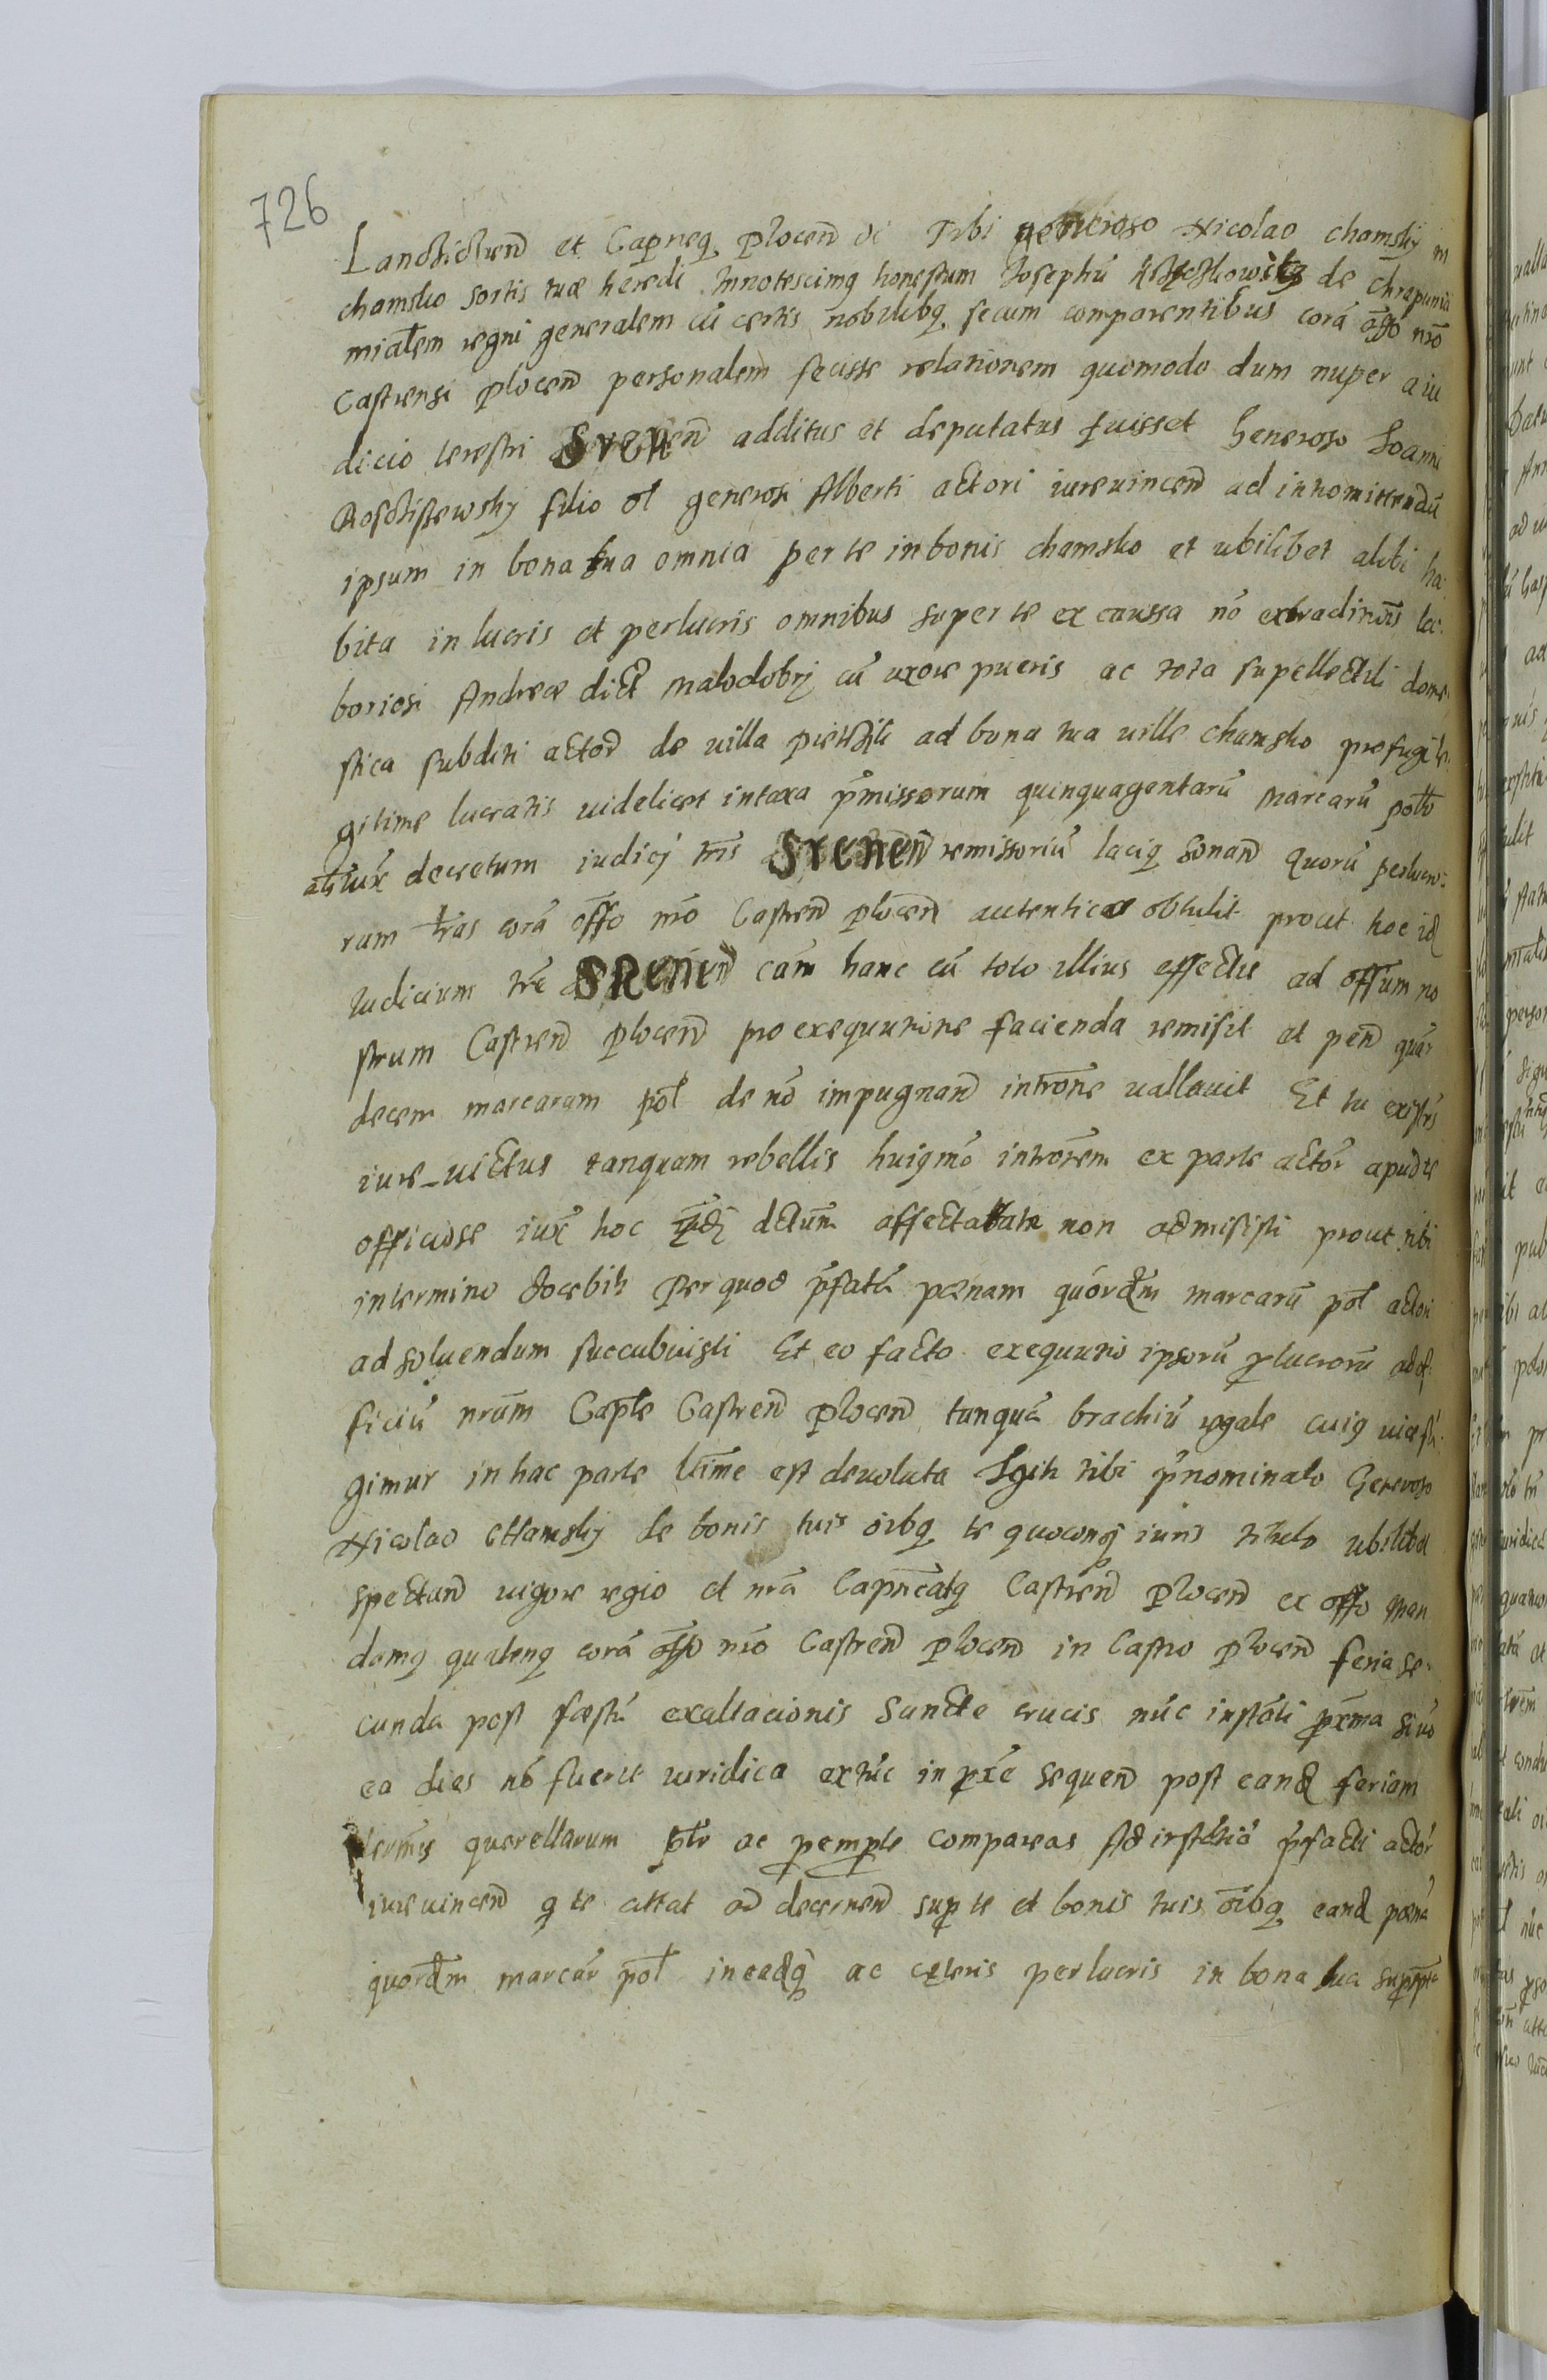 726
Landskicren̄ et Capneq̨ plocen̄ Tibi generoso Nicolao chamsky in
chamsko sortis tuæ heredi Innotescimq̨ honestum Josephū de chrapunia
mialem regni generalem cū certis nobilibq̨ secum comparentibus corā offo nr̄o
Castrensi plocen̄ personalem fecisse relationem quomodo dum nuper a iu
dicio terestri Srenen̄ additus et deputatus fuisset Generoso Joanni
Rosczissewsky filio ol generosi Alberti actori iurevincen̄ ad intromittendū
ipsum in bona tua omnia per te in bonis chamsko et ubilibet alibi ha
bita in lucris et perlucris omnibus super te ex caussa nō extraditiōis la
boriosi Andreæ dict malodobrÿ cū uxore pueris ac tota supellectili dome
stica subditi actor̄ de villa ad bona tua ville chamsko profugi le
gitime lucratis videlicet in taxa p̄missorum quinquagentarū marcarū poł
iux̄ decretum iudicÿ trīs Srenen̄ remissoriū laciq̨ sonan̄ Quorū perlucro
rum tras corā offo nrō Castren̄ plocen̄ autenticas obtulit prout hoc id
Iudicium tr̄e SRenen̄ cām hanc cū toto illius effectu ad offūm no
strum Castren̄ plocen̄ pro exequutione facienda remisit et pen̄ quar
decem marcarum poł de nō impugnan̄ introne vallavit Et tu existēs
iure_victus tanquam rebellis huiq̨mō introm̄em ex parte actōr apud te
officiose iux̄ hoc dctum affectatam non admisisti prout tibi
in termino docebit Per quod p̄fatā pœnam quōrdm̄ marcarū poł actori
ad soluendum succubuisti Et eo facto exequutio ipsorū perlucrorū ad of
ficiū nrūm Caple Castren̄ plocen̄ tanquā brachiū regale cuiq̨ vice fū
gimur in hac parte ltīme est devoluta Igit tibi p̄nominato Generoso
Nicolao Chamsky de bonis tuis oībq̨ te quocunq̨ iuris titulo ubilibet
spectan̄ vigore regio et nrā Capneatq̨ Castren̄ plocen̄ ex offo man
damq̨ quatenq̨ corā offo nrō Castren̄ plocen̄ in Castro plocen̄ feria se
cunda post fæstū exaltacionis Sancte crucis nūc instāti prxma si vo
ea dies nō fuerit iuridica extūc in prx̄e sequen̄ post eand feriam
termīs querellarum ptr ac pempte compareas Ad instātiā p̄facti actōr
iurevincen̄ q te cittat ad decernen̄ sup te et bonis tuis oībq̨ eand pœnā
quordm marcar poł in eadq̨ ac cęteris perlucris in bona tua